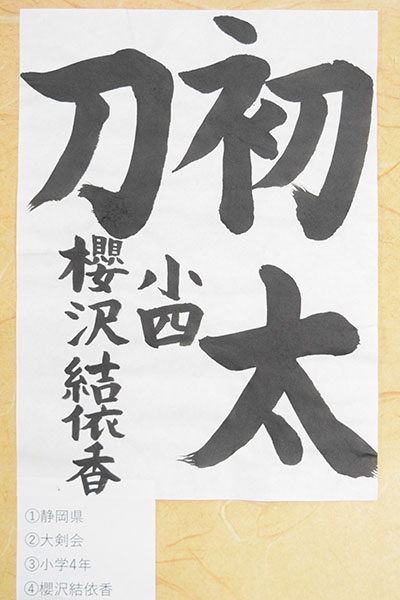 初太
刀
小四
櫻沢結依香
①静岡県
②大剣会
③小学4年
④櫻沢結依香